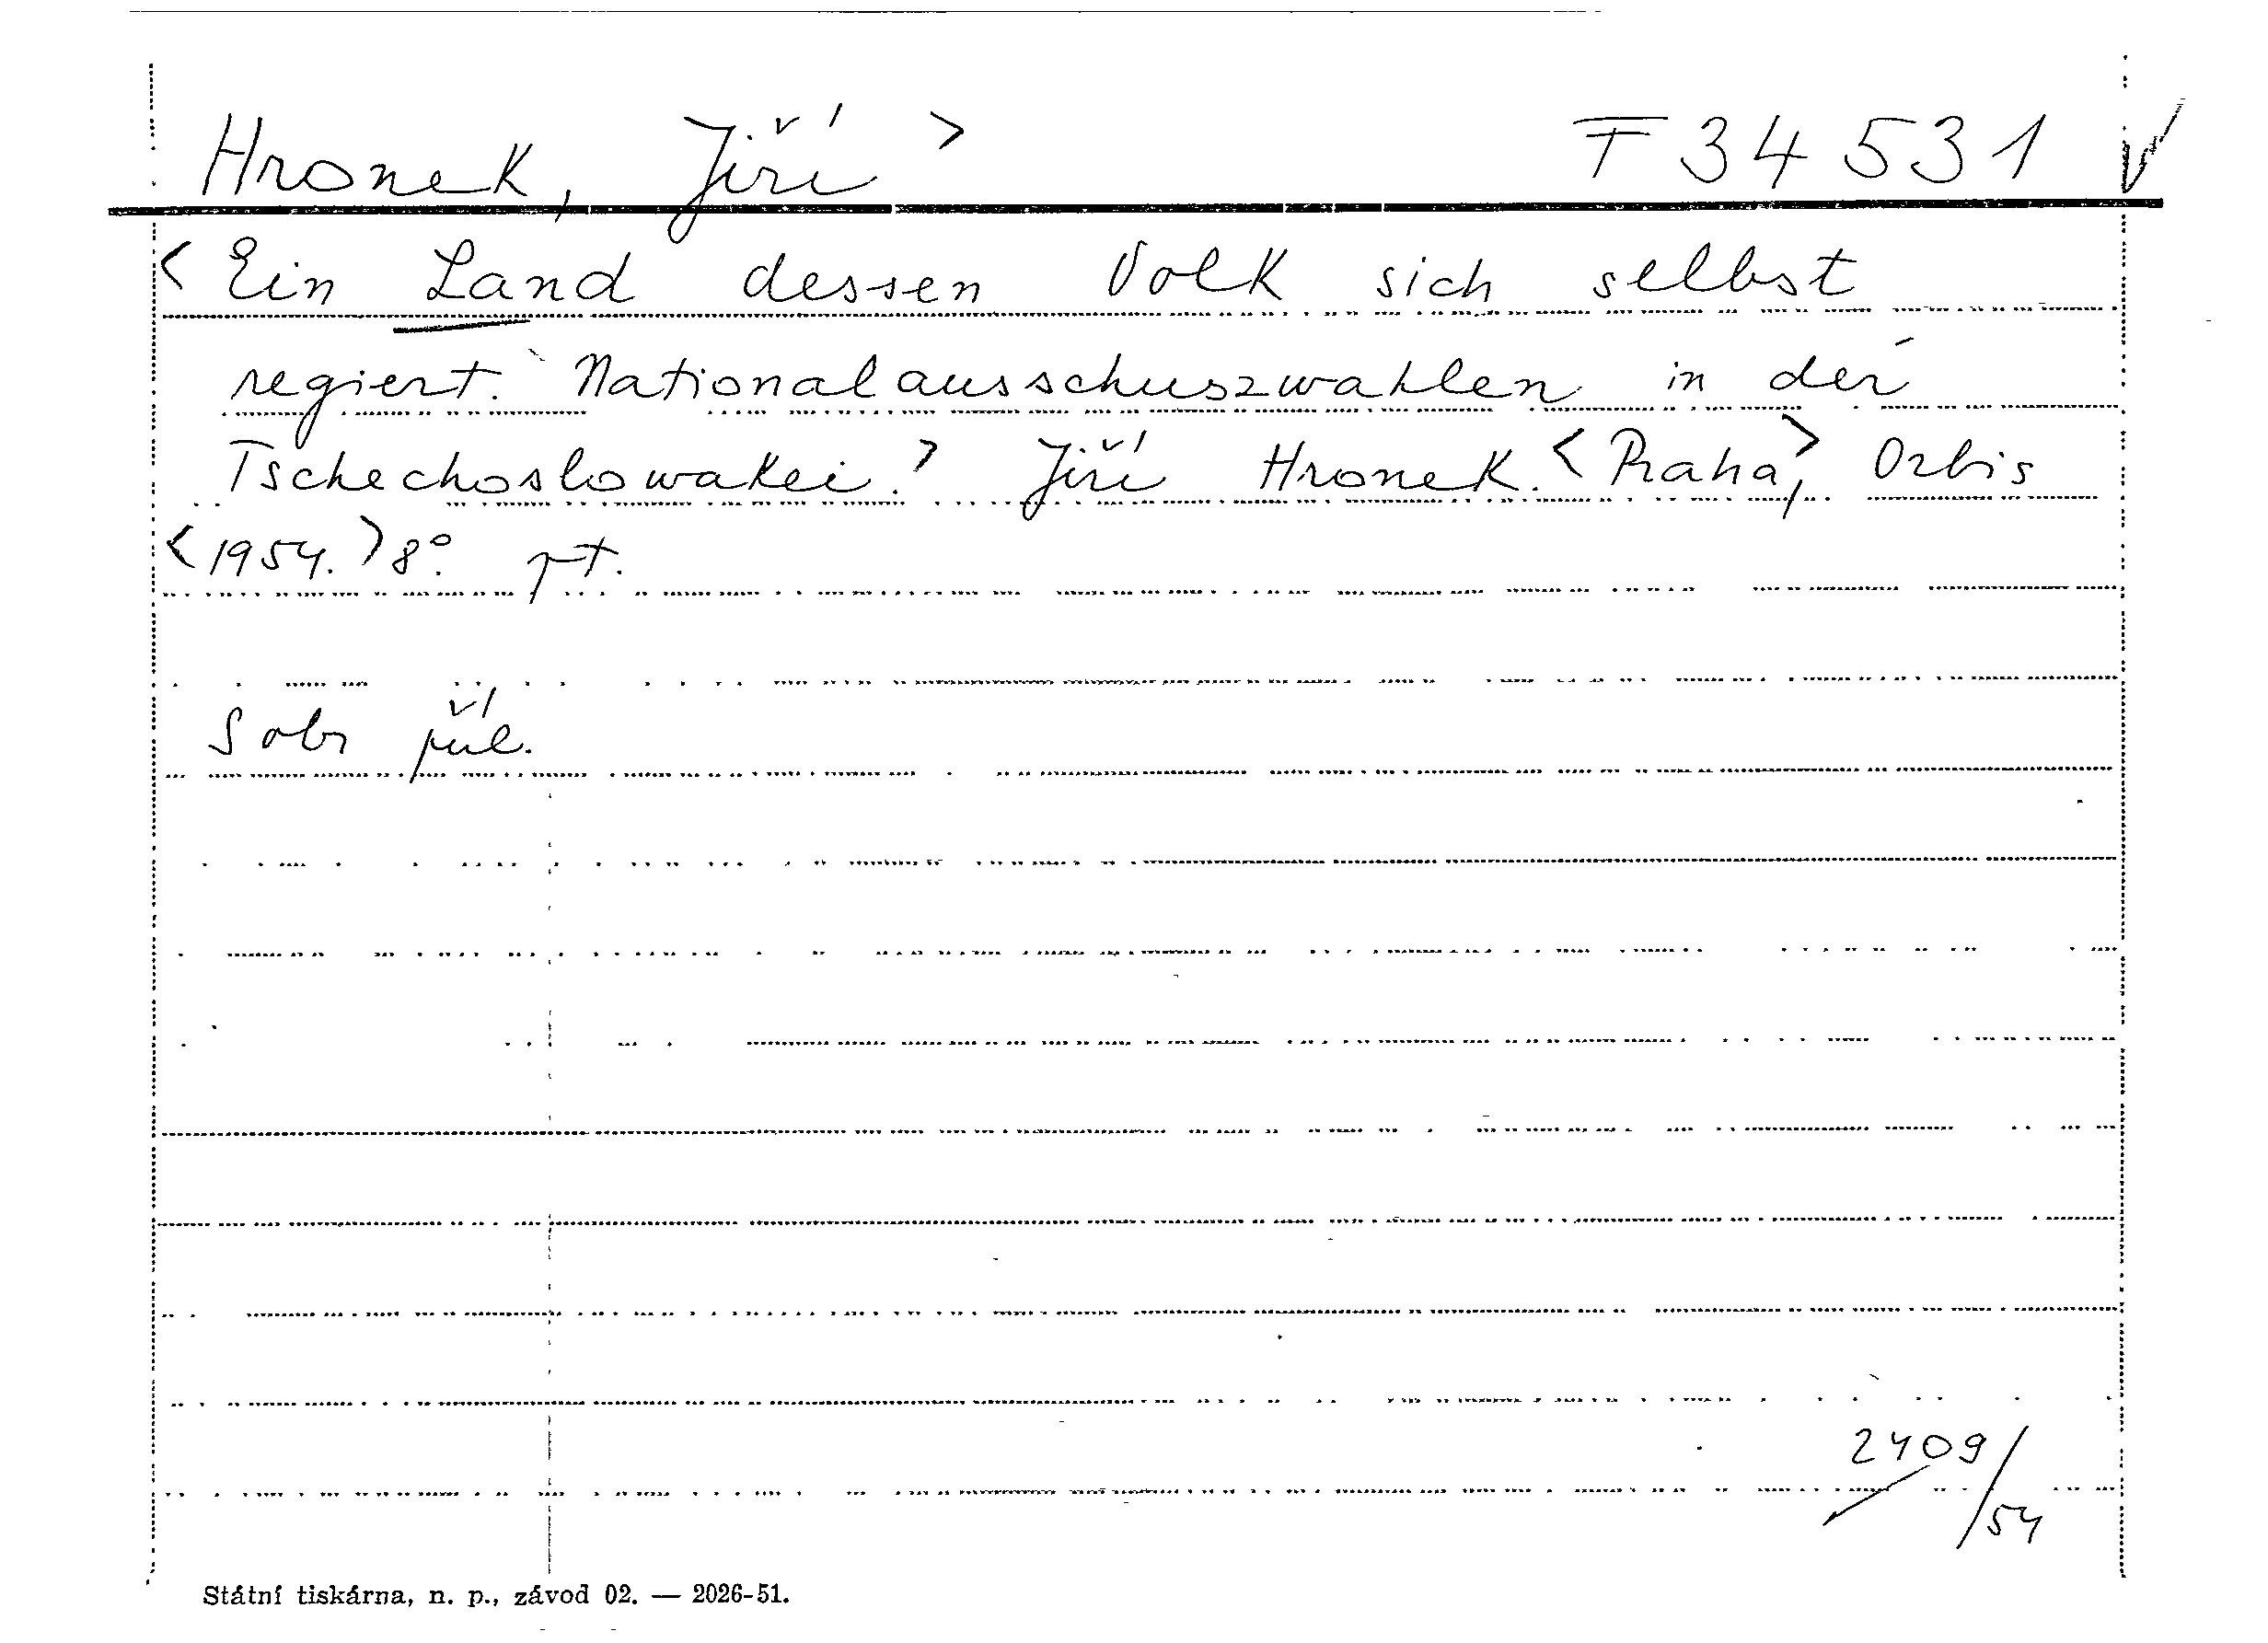 Hronek, Jiří > F 34 531 √
< Ein Land dessen Volk sich selbst
regiert. Nationalausschuszwahlen in der
Tschechoslowakei. > Jiří Hronek. < Praha, > Orbis
< 1954. > 8°. pt.
S obr příl.
2409/54
Státní tiskárna, n. p., závod 02. — 2026-51.